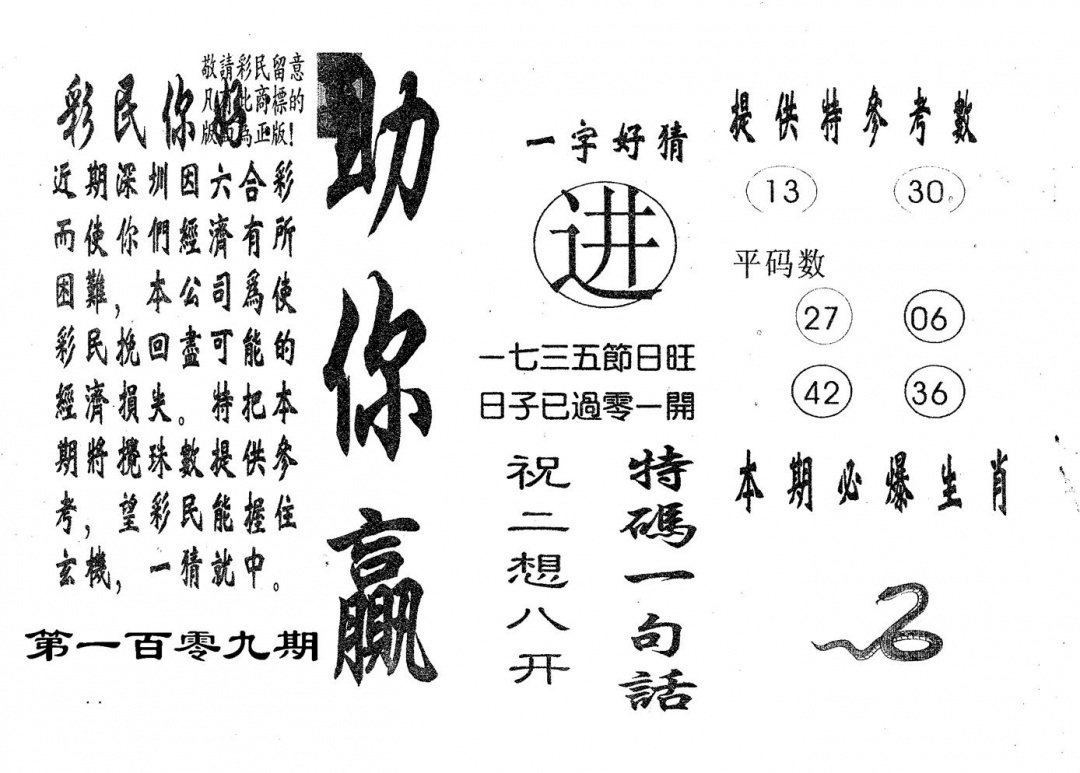 敬請彩民留意
凡有此商標的
版面為正版!
彩民你好
近期深圳因六合彩
而使你們經濟有所
困難,本公司爲使
彩民挽回盡可能的
經濟損失。特把本
期將攪珠數提供參
考,望彩民能握住
玄機,一猜就中。
第一百零九期
助你贏
一字好猜
进
一七三五節日旺
日子已過零一開
特碼一句話
祝二想八开
提供特參考數
13 30
平码数
27 06
42 36
本期必爆生肖